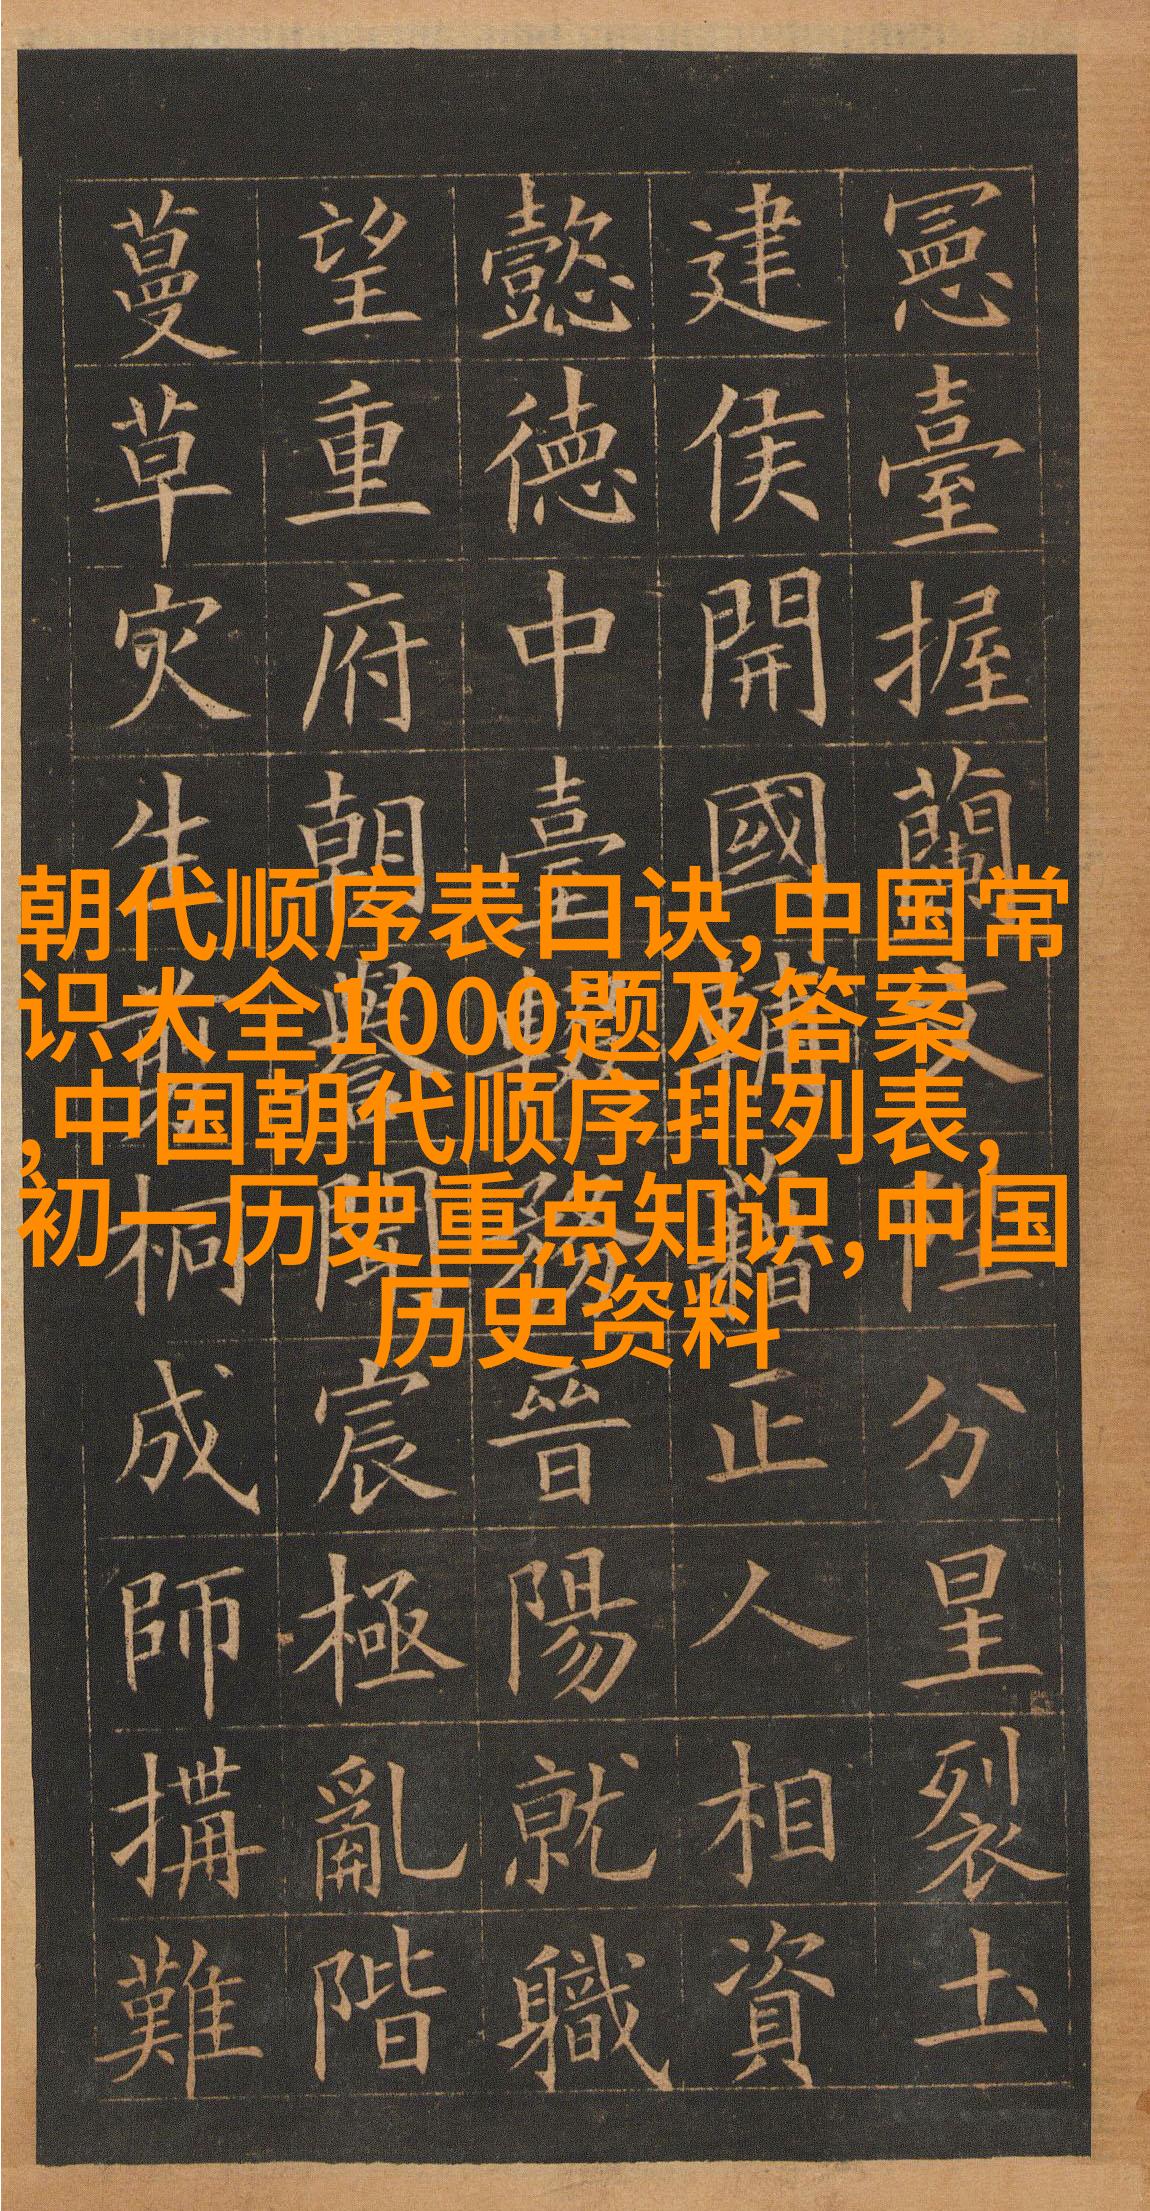 憲臺握蘭文陛分星裂土
建侯開國輔藉正人相資
懿德中臺輟務晉陽就職
望重府朝譽聞宸極亂階
蔓草灾生剪桐成師搆難
朝代顺序表口诀,中国常
识大全1000题及答案
,中国朝代顺序排列表,
初一历史重点知识,中国
历史资料